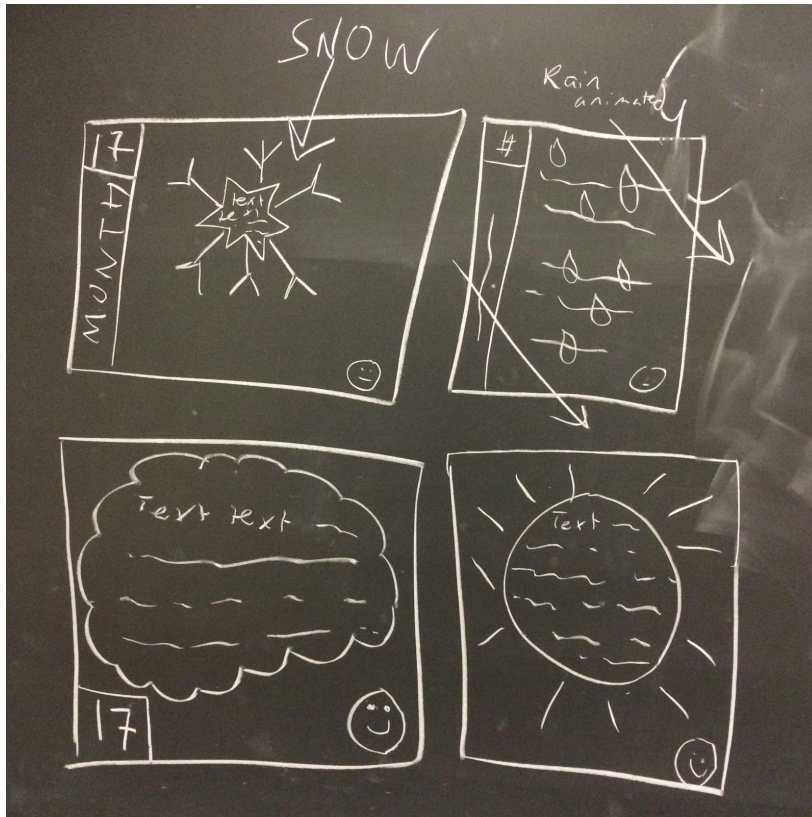 SNOW
Rain
animated
17
MONTH
text
text
#
Text text
17
Text